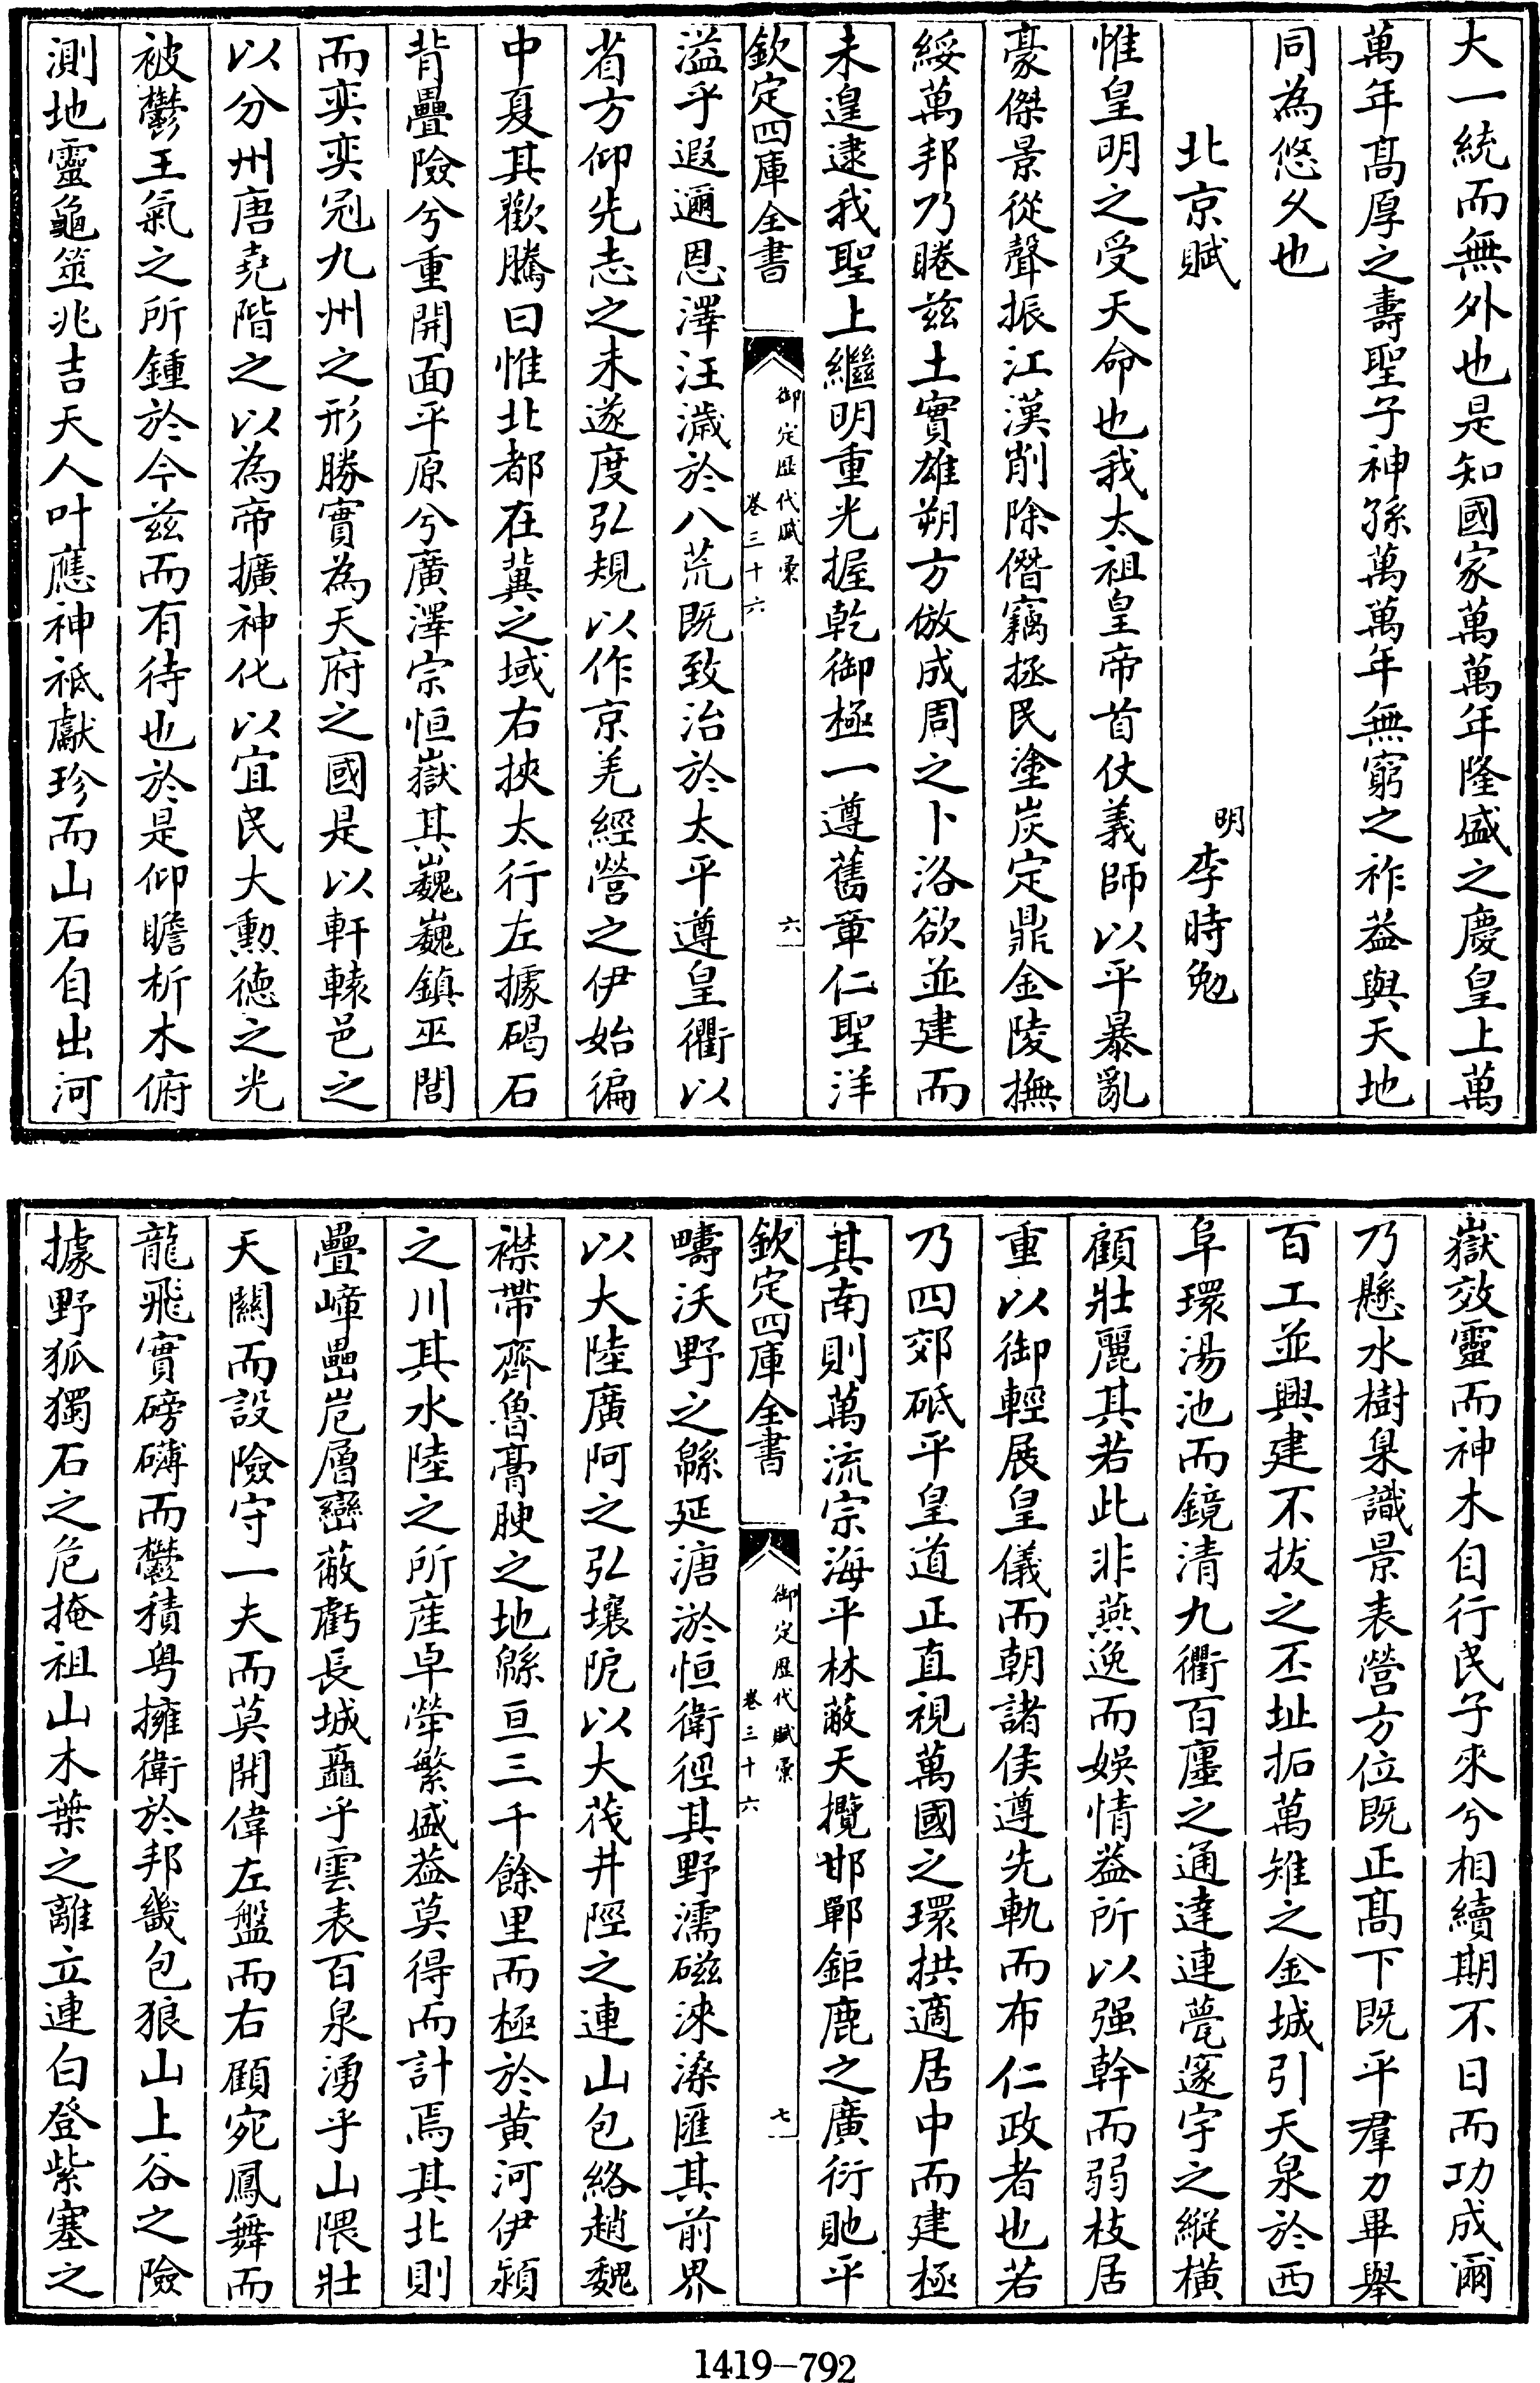 大一統而無外也是知國家萬萬年隆盛之慶皇上萬
萬年髙厚之壽聖子神孫萬萬年無窮之祚益與天地
同為悠久也
北京賦
明李時勉
惟皇明之受天命也我太祖皇帝首仗義師以平暴亂
豪傑景從聲振江漢削除僭竊拯民塗炭定鼎金陵撫
綏萬邦乃睠兹土實雄朔方倣成周之卜洛欲並建而
未遑逮我聖上繼明重光握乾御極一遵舊章仁聖洋
欽定四庫全書
御定歴代賦彙
卷三十六
六
溢乎遐邇恩澤汪濊於八荒既致治於太平遵皇衢以
省方仰先志之未遂度弘規以作京羌經營之伊始徧
中夏其歡騰曰惟北都在冀之域右挾太行左據碣石
背疊險兮重開面平原兮廣澤宗恒嶽其巍巍鎮巫閭
而奕奕冠九州之形勝實為天府之國是以軒轅邑之
以分州唐堯階之以為帝擴神化以宜民大勲德之光
被鬱王氣之所鍾於今兹而有待也於是仰瞻析木俯
測地靈龜筮兆吉天人叶應神祗獻珍而山石自出河
嶽效靈而神木自行民子來兮相續期不日而功成爾
乃懸水樹臬識景表營方位既正髙下既平羣力畢舉
百工並興建不拔之丕址拓萬雉之金城引天泉於西
阜環湯池而鏡清九衢百廛之通達連甍邃宇之縱橫
顧壯麗其若此非燕逸而娛情葢所以强幹而弱枝居
重以御輕展皇儀而朝諸侯遵先軌而布仁政者也若
乃四郊砥平皇道正直視萬國之環拱適居中而建極
其南則萬流宗海平林蔽天攬邯鄲鉅鹿之廣衍貤平
欽定四庫全書
御定歴代賦彙
卷三十六
七
疇沃野之緜延溏淤恒衛徑其野濡磁淶濠匯其前界
以大陸廣阿之弘壤阸以大茂井陘之連山包絡趙魏
襟帶齊魯膏腴之地緜亘三千餘里而極於黄河伊潁
之川其水陸之所産卓犖繁盛葢莫得而計焉其北則
疊嶂壘崿層巒蔽虧長城矗乎雲表百泉湧乎山隈壯
天關而設險守一夫而莫開偉左盤而右顧宛鳳舞而
龍飛實磅礴而鬱積粤擁衛於邦畿包狼山上谷之險
據野狐獨石之危掩祖山木葉之離立連白登紫塞之
1419-792